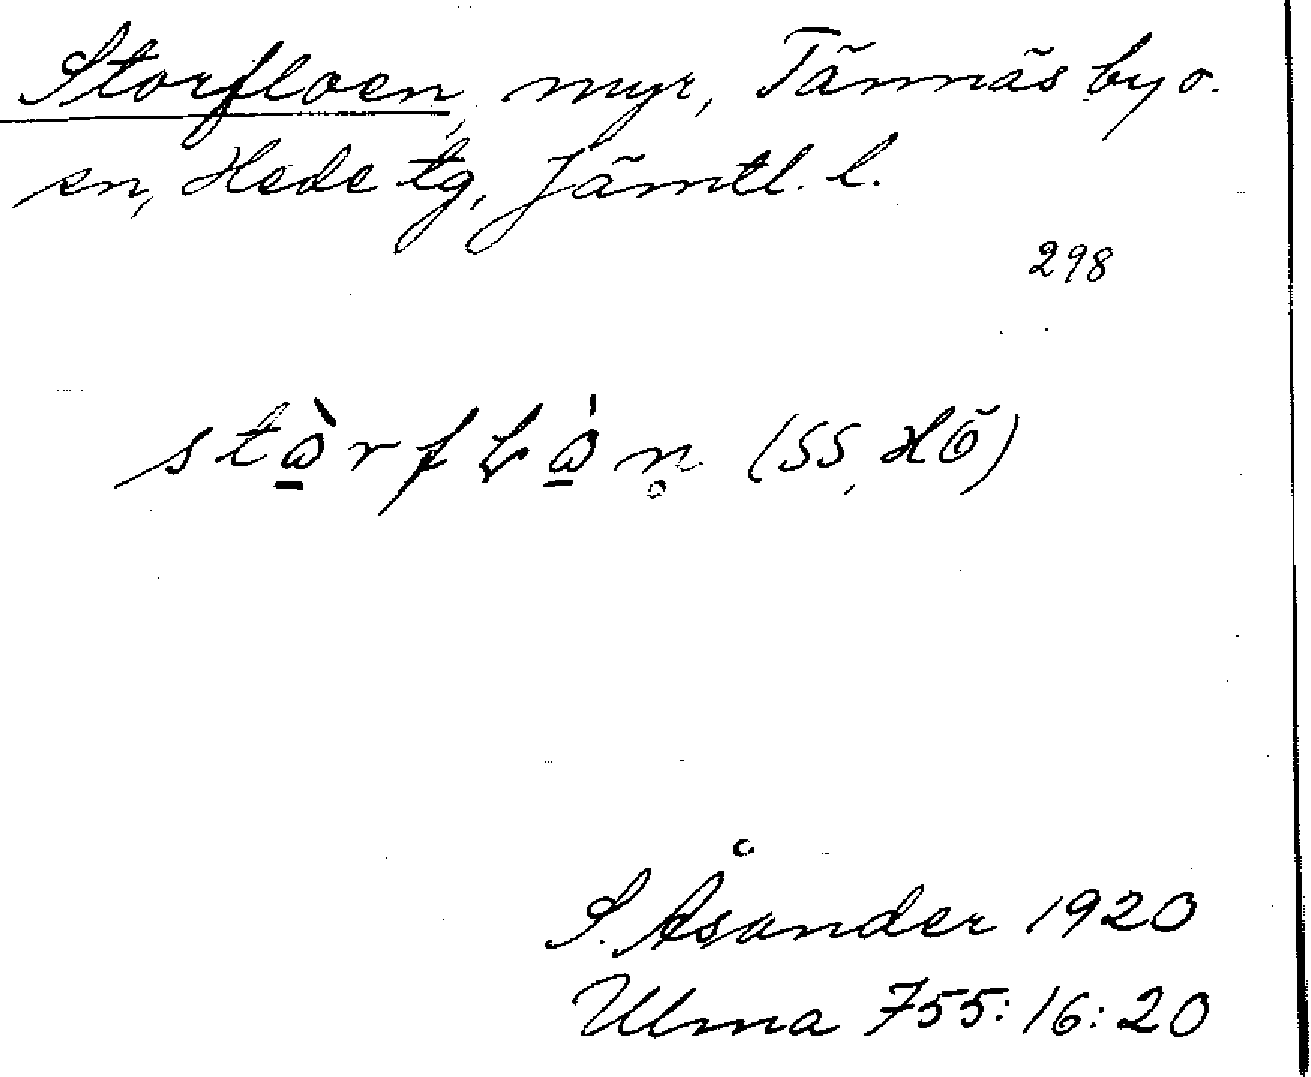 Storfloen, myr, Tännäs by o.
sn, Hede tg, Jämtl. l.
298
stὼ̱rfɫω̱̍n̥ (SS, HÖ)
S. Åsander 1920
Ulma 755:16:20